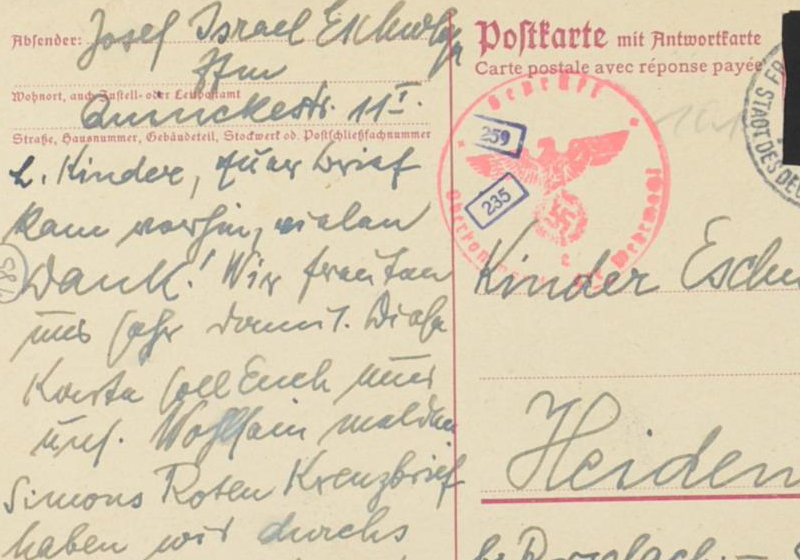 Absender: Josef Israel Eschwege
Ffm
Wohnort, auch Zustell- oder Leitpostamt
11 I.
Straße, Hausnummer, Gebäudeteil, Stockwerk od. Postschließfachnummer
L. Kinder, Euer Brief
kam vorhin, vielen
Dank! Wir freuten
uns sehr damit. Diese
Karte soll Euch nur
uns. Wohlsein melden
Simons Roten Kreuzbrief
haben wir durchs
Postkarte mit Antwortkarte
Carte postale avec réponse payée
Geprüft
259
235
Oberkommando der Wehrmacht
e
STADT DES DE
Kinder Eschw
Heiden
b. Rorschach